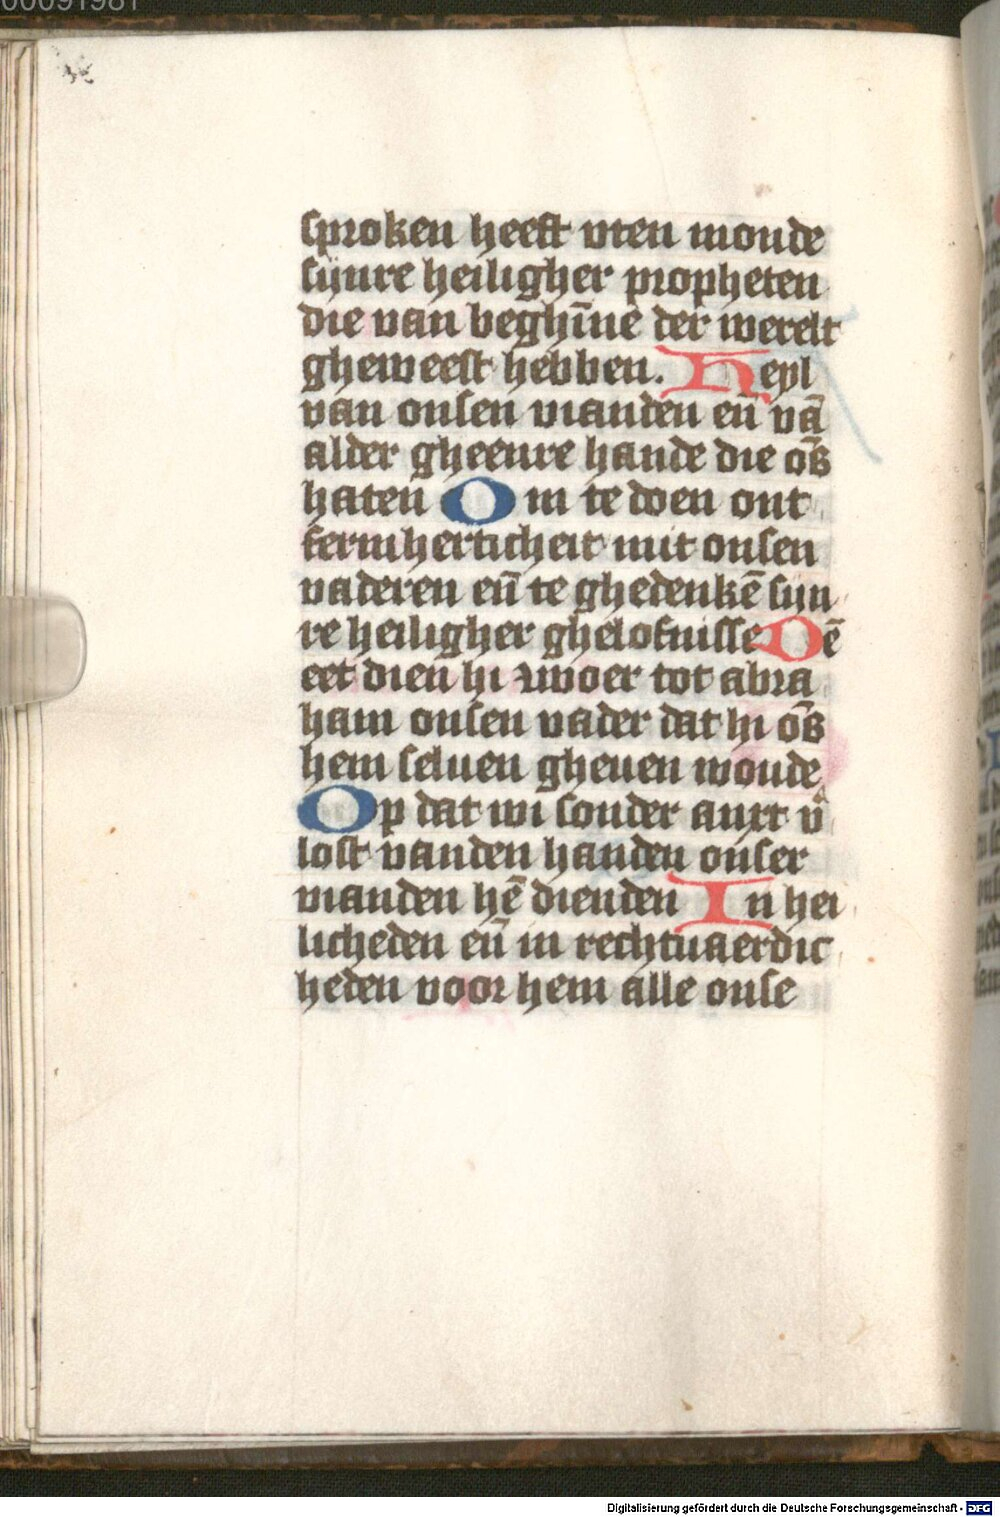 00091981
sproken heeft vten monde
sijnre heiligher propheten
die van beghīne der werelt
gheweest hebben. Heyl
van onsen vianden en̄ vā
alder gheenre hande die ōs
haten Om te doen ont
fermherticheit mit onsen
vaderen en̄ te ghedenkē sijn
re heiligher ghelofnisse Dē
eet dien hi zwoer tot abra
ham onsen vader dat hi ōs
hem seluen gheuen woude
Op dat wi sonder anxt v̄
lost vanden handen onser
vianden hē dienden In hei
licheden en̄ in rechtuaerdic
heden voor hem alle onse
Digitalisierung gefördert durch die Deutsche Forschungsgemeinschaft - DFG